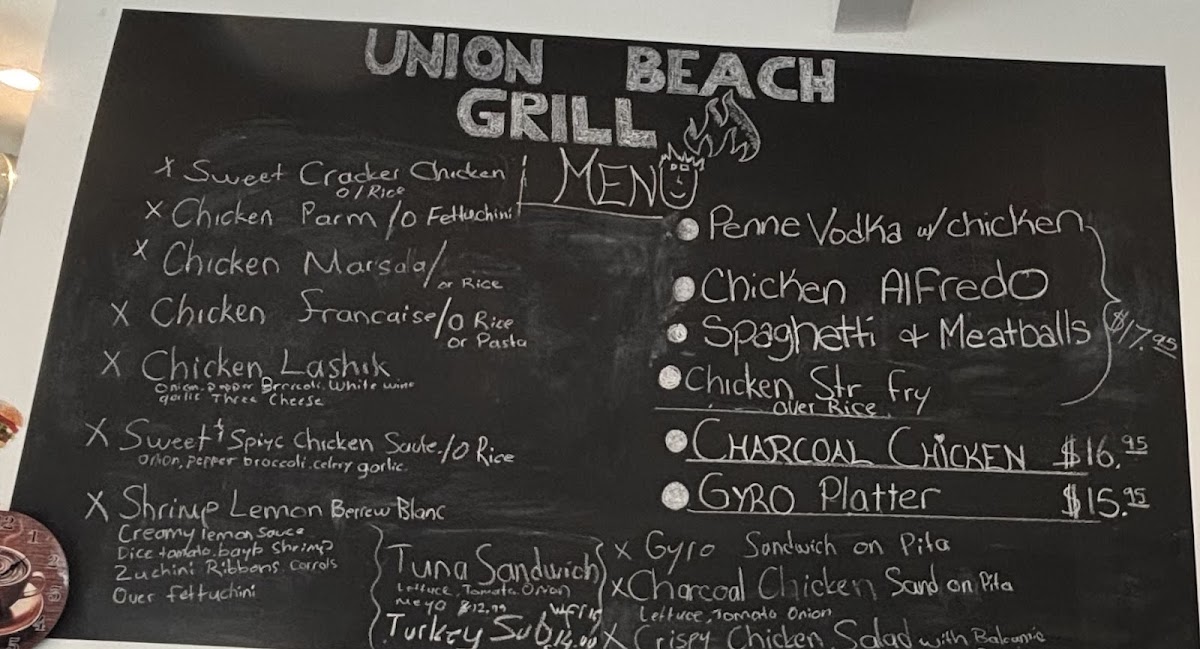 UNION BEACH
GRILL
MENU
X Sweet Cracker Chicken
O/Rice
X Chicken Parm/o Fettuchini
X Chicken Marsala/
or Rice
X Chicken Francaise/o Rice
or Pasta
X Chicken Lashik
Onion. Pepper Broccoli. White wine
garlic Three Cheese
X Sweet & Spiyc Chicken Saute/O Rice
Onion, pepper broccoli. celery garlic.
X Shrimp Lemon Berrew Blanc
Creamy lemon sauce
Dice tomato. bayb Shrimp
Zuchini Ribbons. Carrots
Over fettuchini
Penne Vodka w/chicken
Chicken Alfredo
Spaghetti & Meatballs
$17.95
Chicken Str fry
over Rice
CHARCOAL CHICKEN $16.95
GYRO Platter $15.95
Tuna Sandwich
Lettuce, Tomato Onion
Mayo $12.99
Turkey Sub 14.00
X Gyro Sandwich on Pita
X Charcoal Chicken Sand on Pita
Lettuce, Tomato Onion
X Crispy Chicken Salad with Balcamic